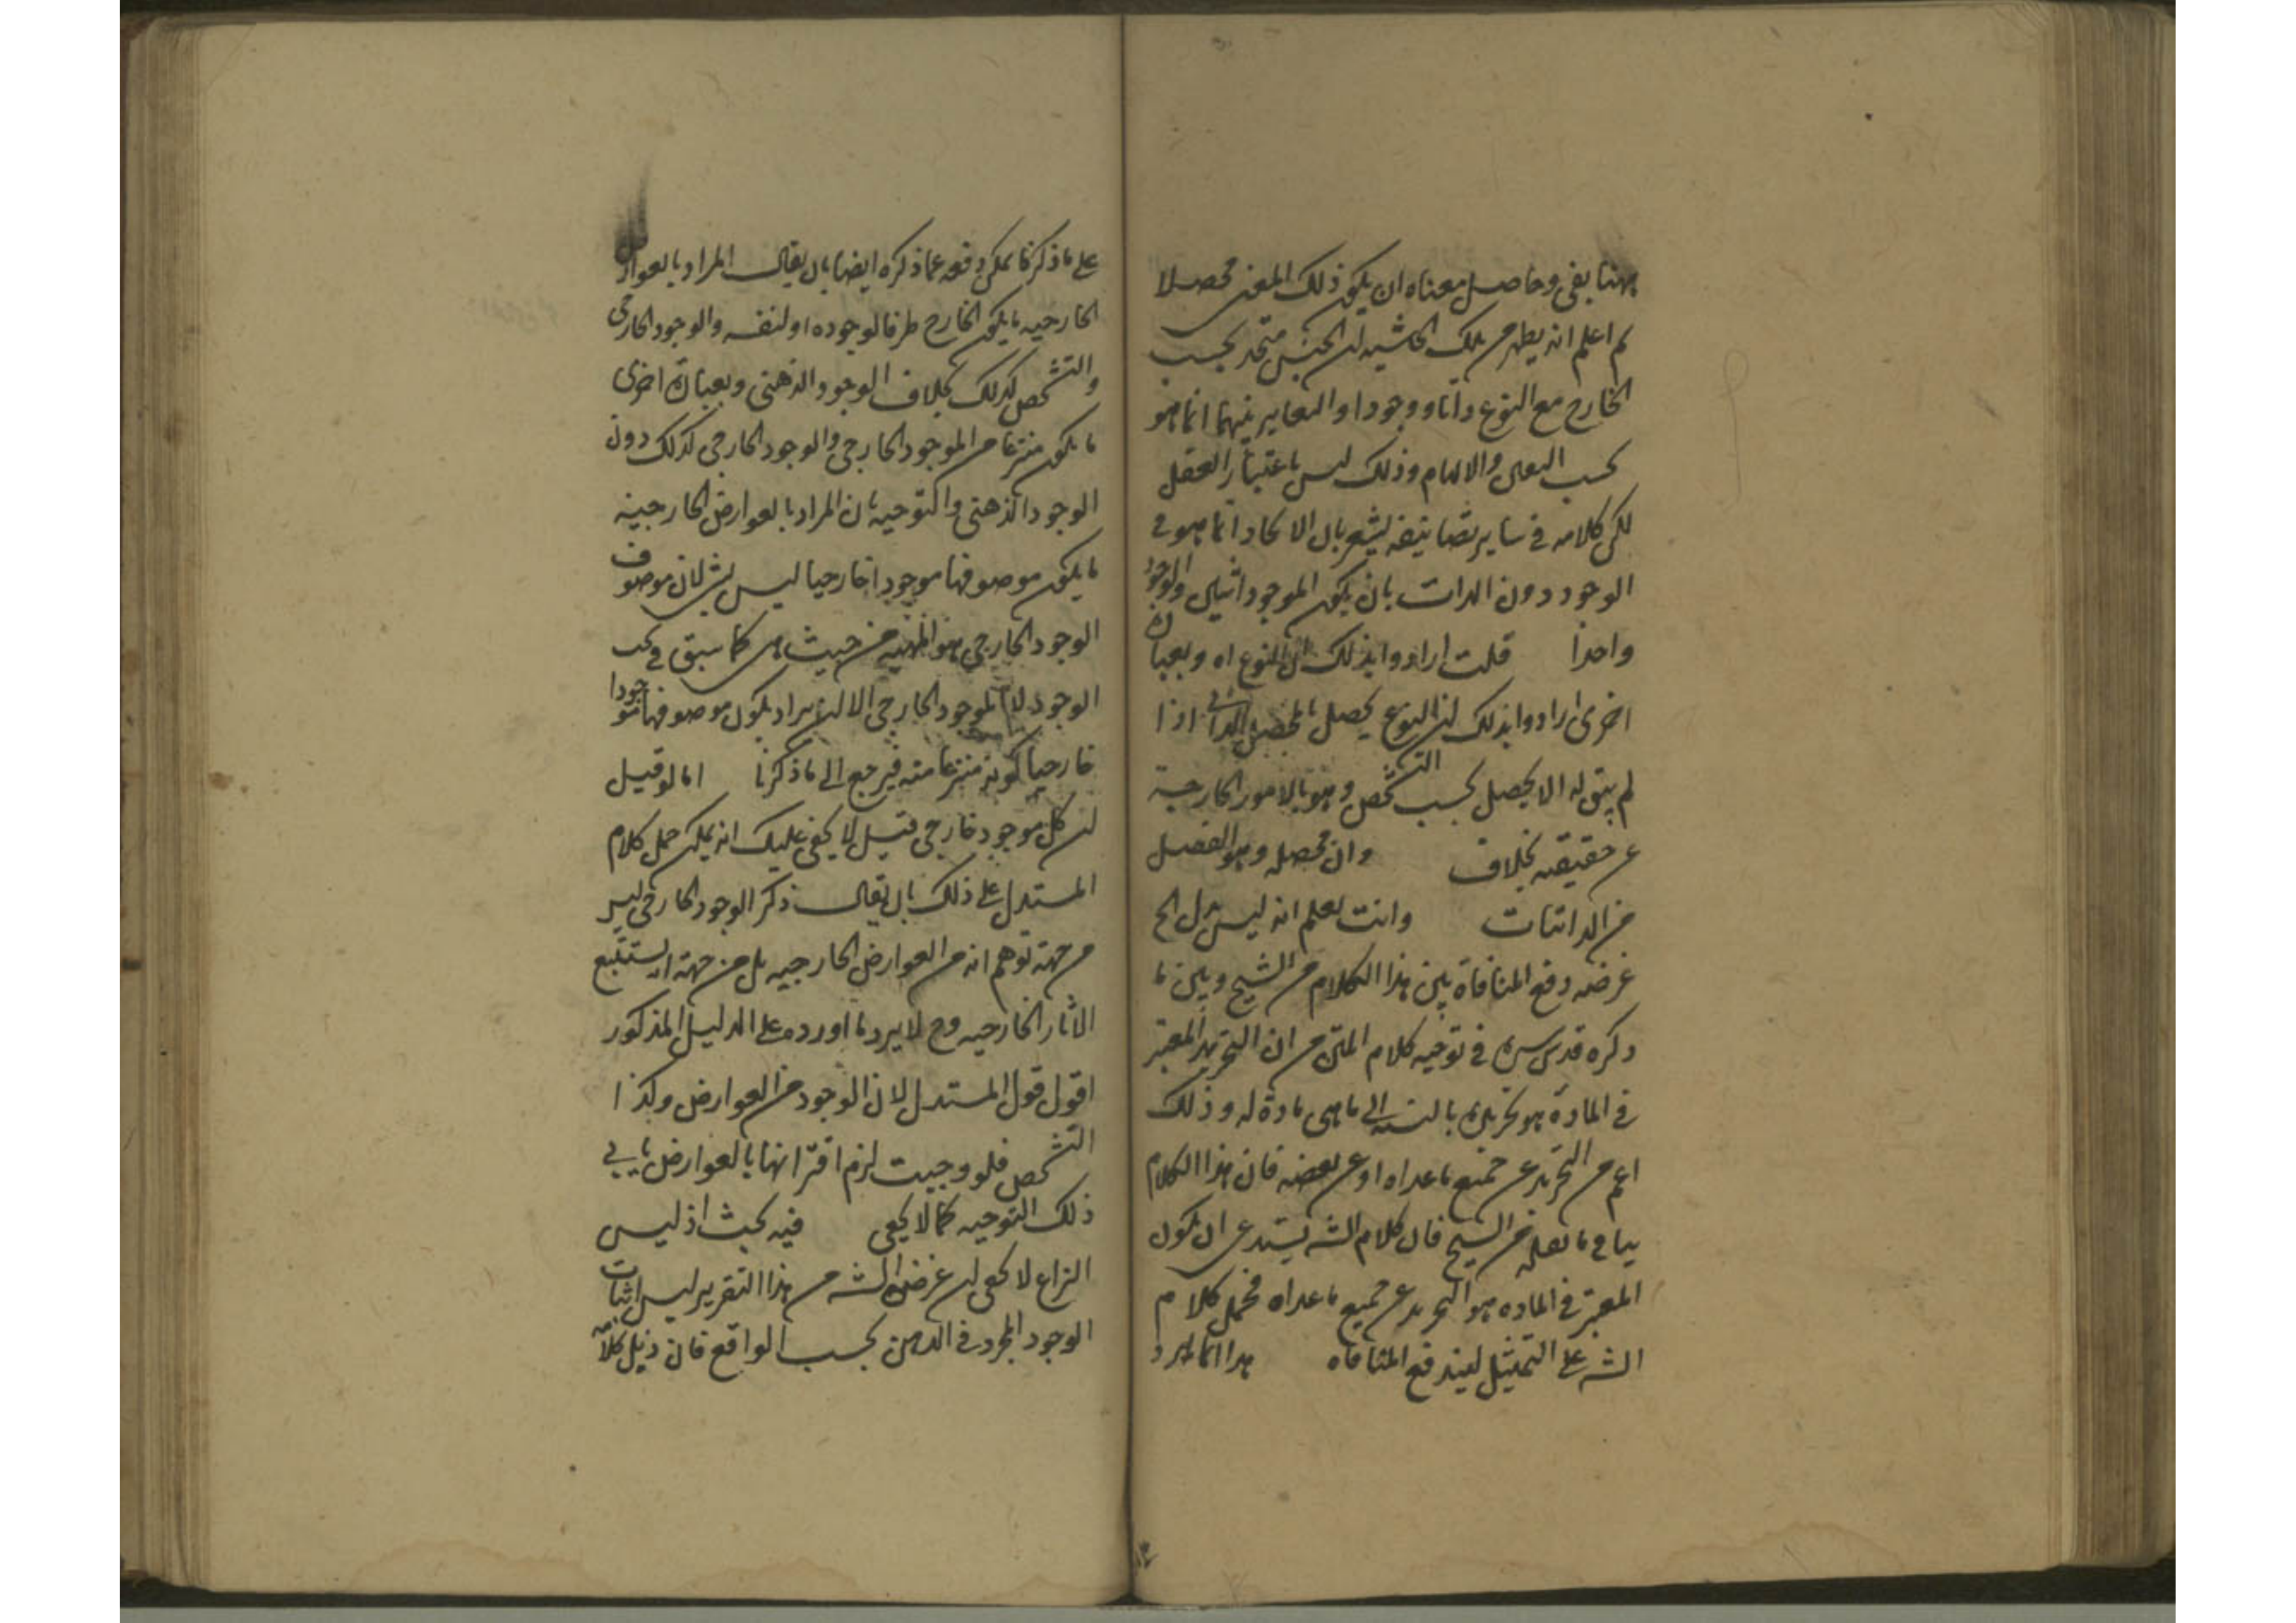 ههنا بقى وحاصل معناه ان يكون ذلك المعنى محصلا
ثم اعلم انه يظهر من تلك الحاشيه ان الجنس متحد بحسب
الخارج مع النوع ذاتا ووجودا والتغاير بينهما انما هو
بحسب التعين والابهام وذلك ليس باعتبار العقل
لكن كلامه في ساير تصانيفه يشعر بان الاتحاد انما هو في
الوجود دون الذات بان يكون الموجود اثنين والوجود
واحدا قلت ارادوا بذلك ان النوع اه وبعبارة
اخرى ارادوا بذلك ان النوع يحصل بالمحصل الذاتي اذا
لم يبق له الا يحصل بحسب التشخص وهو بالامور الخارجية
عن حقيقته بخلاف وان محصله وهو الفصل
من الذاتيات وانت تعلم انه ليس بدل الخ
غرضه دفع المنافاة بين هذا الكلام من الشيخ وبين ما
ذكره قدس سره في توجيه كلام المتن من ان التجريد المعتبر
في المادة هو تجريده بالنسبه الى ما هي مادة له وذلك
اعم من التجريد عن جميع ما عداه او عن بعضه فان هذا الكلام
ينافي ما نقله من الشيخ فان كلام الشه يستدعى ان يكون
المعتبر في الماده هو التجريد عن جميع ما عداه فحمل كلام
الشه على التمثيل ليندفع المنافاه هذا انما يرد
على ما ذكرنا يمكن دفعه عما ذكره ايضا بان يقال المراد بالعوارض
الخارجيه ما يكون الخارج ظرفا لوجوده او لنفسه والوجود الخارجى
والتشخص كذلك بخلاف الوجود الذهنى وبعبارة اخرى
ما يكون منتزعا من الموجود الخارجى والوجود الخارجى كذلك دون
الوجود الذهنى والتوجيه بان المراد بالعوارض الخارجية
ما يكون موصوفها موجودا خارجيا ليس بشئ لان موصوف
الوجود الخارجى هو المهيه من حيث هى كما سبق في بحث
الوجود لا الموجود الخارجى الا ان يراد بكون موصوفها موجودا
خارجيا كونه منتزعا منه فيرجع الى ما ذكرنا اما لو قيل
ان كل موجود خارجى قيل لا يخفى عليك انه يمكن حمل كلام
المستدل على ذلك بان يقال ذكر الوجود الخارجى ليس
من جهة توهم انه من العوارض الخارجيه بل من جهة انه يستتبع
الاثار الخارجيه وح لا يرد ما اورده على الدليل المذكور
اقول قول المستدل لان الوجود من العوارض وكذا
التشخص فلو وجدت لزم اقترانها بالعوارض يابى
ذلك التوجيه كما لا يخفى فيه بحث اذ ليس
النزاع لا يخفى ان غرض الشه من هذا التقرير ليس اثبات
الوجود المجرد في الذهن بحسب الواقع فان ذيل كلامه